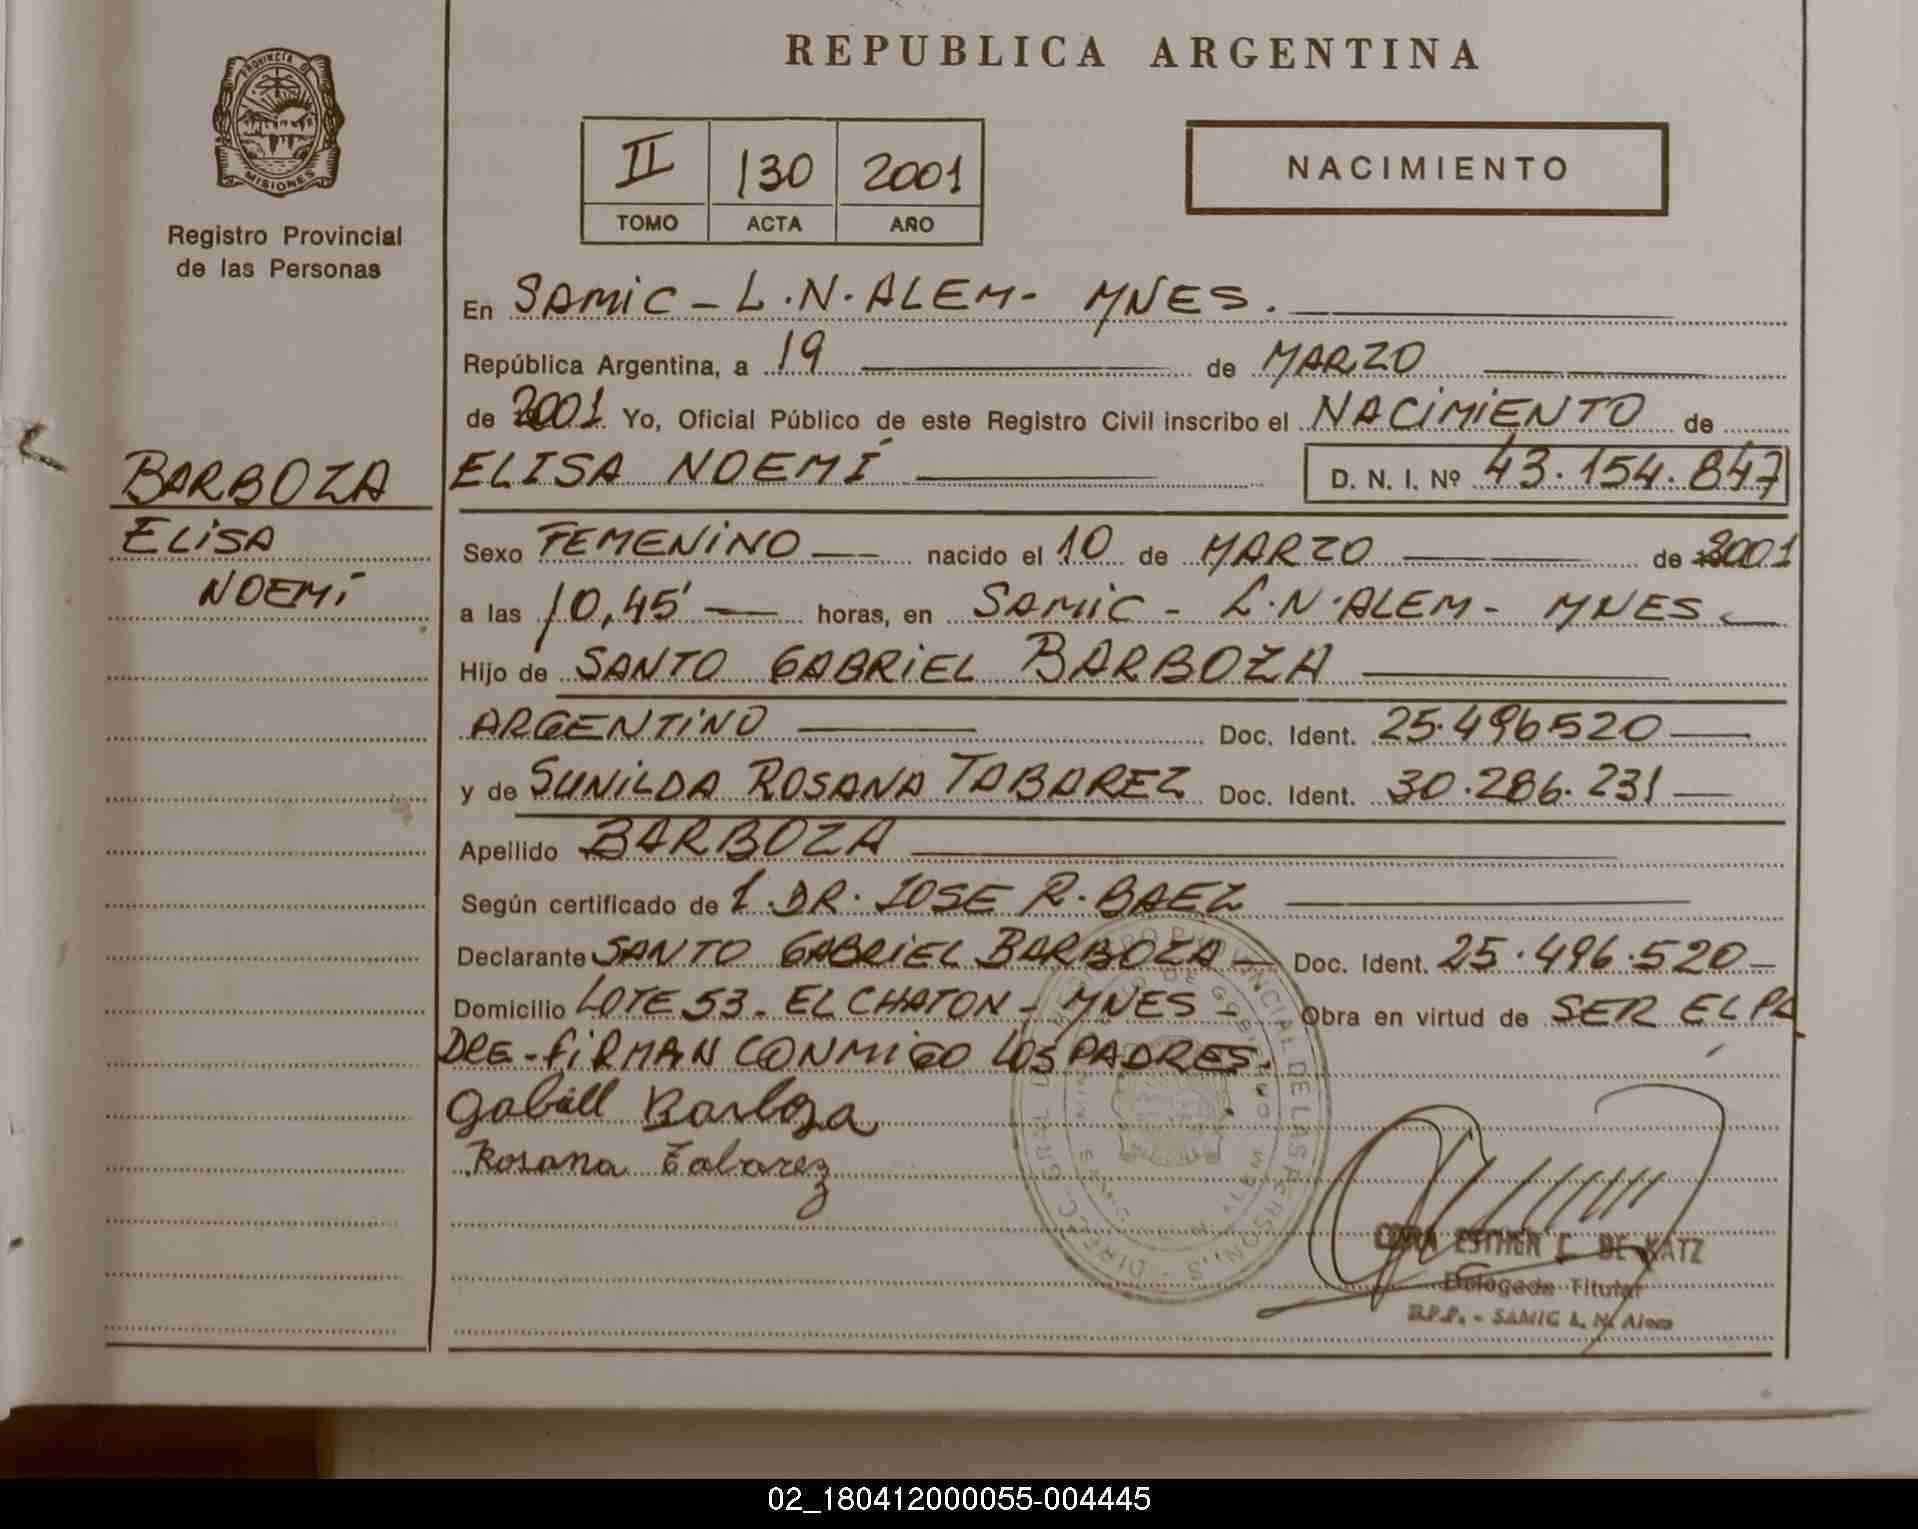 REPUBLICA ARGENTINA
PROVINCIA DE
MISIONES
Registro Provincial
de las Personas
II 130 2001
TOMO ACTA AÑO
NACIMIENTO
En SAMIC - L.N. ALEM - MNES.
República Argentina, a 19 de MARZO
de 2001. Yo, Oficial Público de este Registro Civil inscribo el NACIMIENTO de
BARBOZA
ELISA
NOEMÍ
ELISA NOEMÍ D. N. I. Nº 43.154.847
Sexo FEMENINO nacido el 10 de MARZO de 2001
a las 10,45' horas, en SAMIC - L.N. ALEM - MNES
Hijo de SANTO GABRIEL BARBOZA
ARGENTINO Doc. Ident. 25.496520
y de SUNILDA ROSANA TABAREZ Doc. Ident. 30.286.231
Apellido BARBOZA
Según certificado de 1. DR. JOSE R. BAEZ
Declarante SANTO GABRIEL BARBOZA Doc. Ident. 25.496.520
Domicilio LOTE 53 - EL CHATON - MNES - Obra en virtud de SER EL PA
DRE - FIRMAN CONMIGO LOS PADRES.
Gabriel Barboza
Rosana Tabarez
ESTHER DE KATZ
Delegada Titular
SAMIC L. N. Alem
02_180412000055-004445